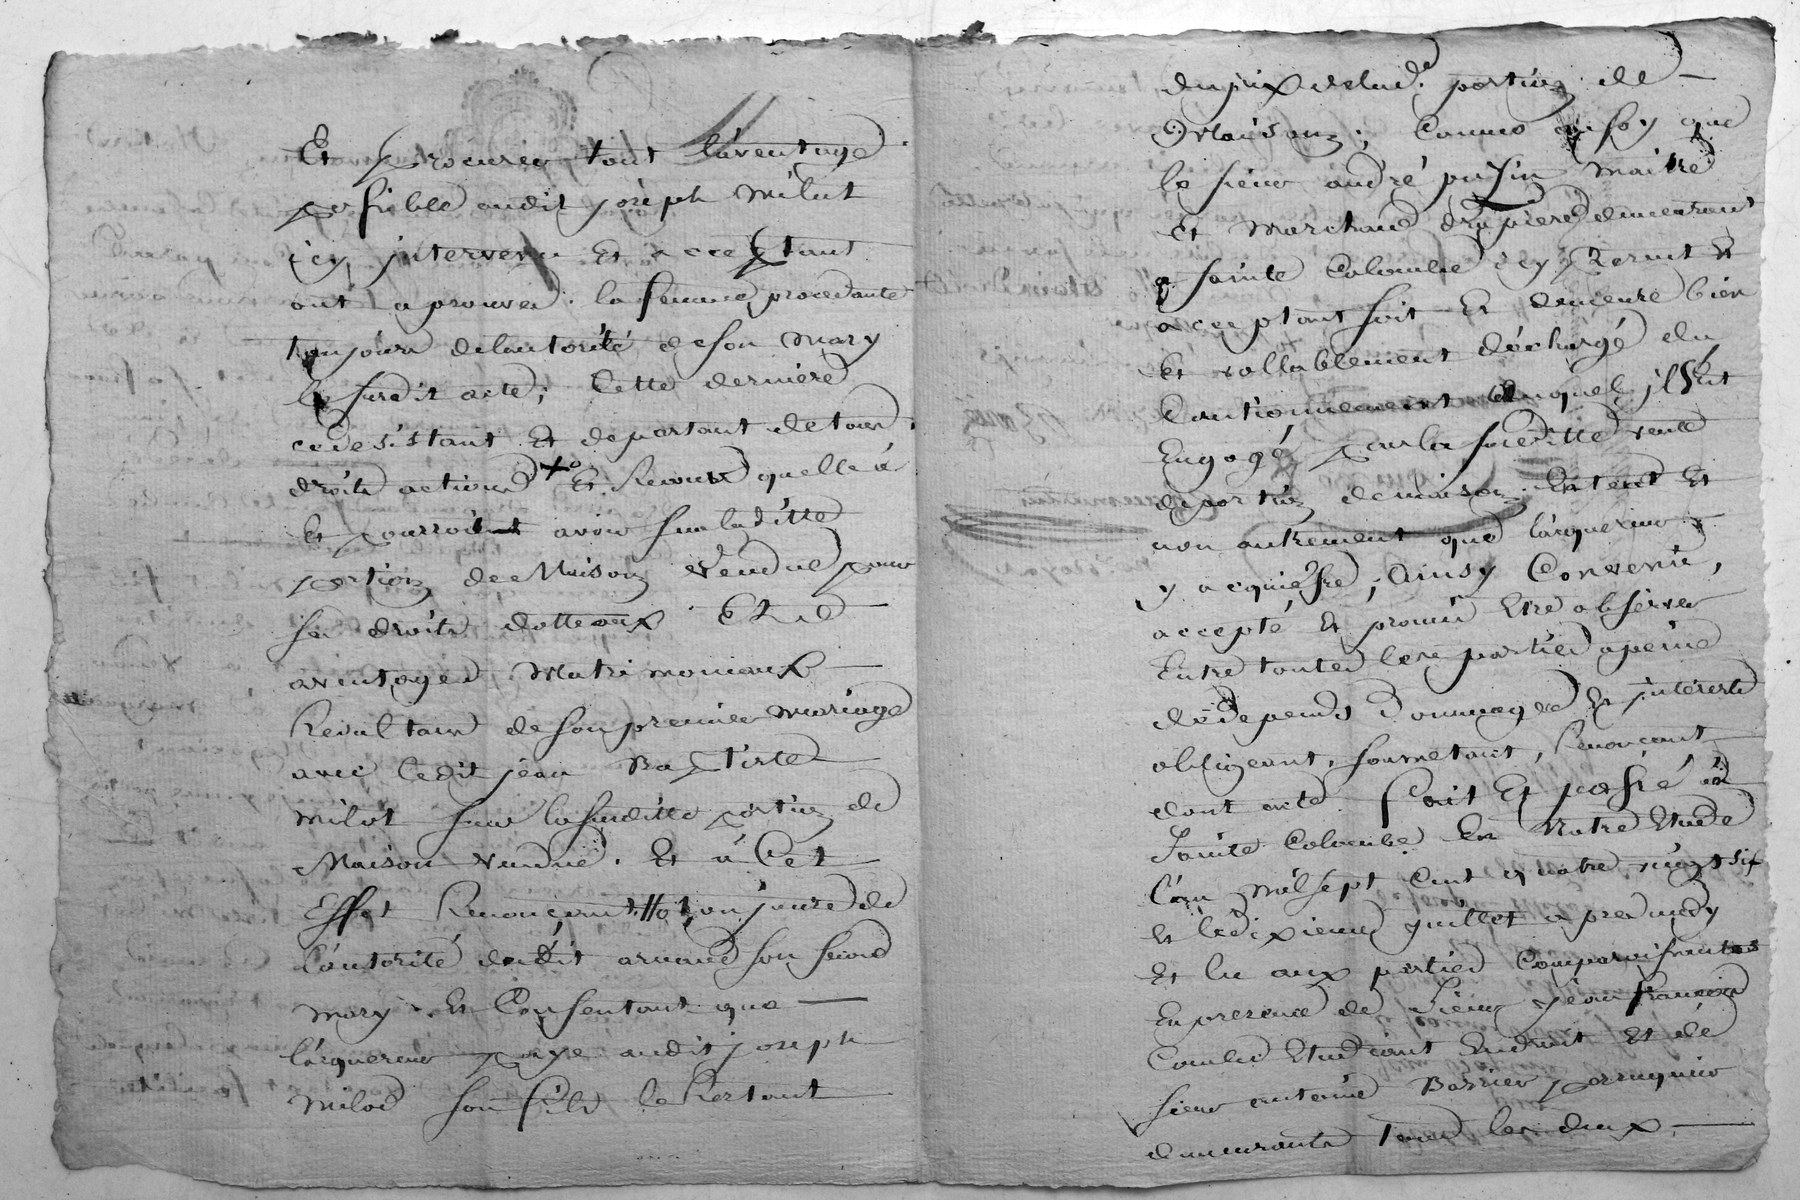 Et procurer tout l'aventage
possible audit joseph milut
icy intervenu Et acceptant
ont aprouver la femme procedante
toujours de lautorité de son mary
le surdit acte; Cette derniere
ce desistant Et departant de tous
droits actions +° Et Revour quelle a
Et pourroit avoir sur laditte
portion de Maison Vendue pour
ses droits dotteaux Et
aventages Matrimonieaux
Resultant de son premier mariage
avec ledit jean Baptiste
milot sur la susditte portion de
Maison vendue. Et a Cet
Effet Renonçant toujours de
l'autorité dudit arnaud son second
mary. Et Consentant que
l'acquereur paye audit joseph
milod son fils le Restant
du prix de lad.e portion de
Maison; Comme aussy que
le sieur andré puzin maitre
Et Marchand drapier demeurant
a sainte Colombe icy present Et
acceptant soit Et demeure bien
Et vallablement déchargé du
Cautionnement auquel il s'est
Engagé par la susditte vente
de portion de maison Entant Et
non autrement que l'acquereur
y acquiesse; Ainsy Convenu,
accepté Et promis Etre observer
Entre toutes lesd parties a peine
de depends Dommages Et interests
obligeant, soumetant, Renonçant
dont acte. fait Et passé a
Sainte Colombe En Notre Etude
l'an mil sept Cent quatre vingt six
Et le dixieme juillet apres midy
Et lu aux parties Comparaissantes
En presence de Sieur jean francois
Combe Etudiant Endroit Et de
sieur antoine Barrier perruquier
demeurants Tous les deux